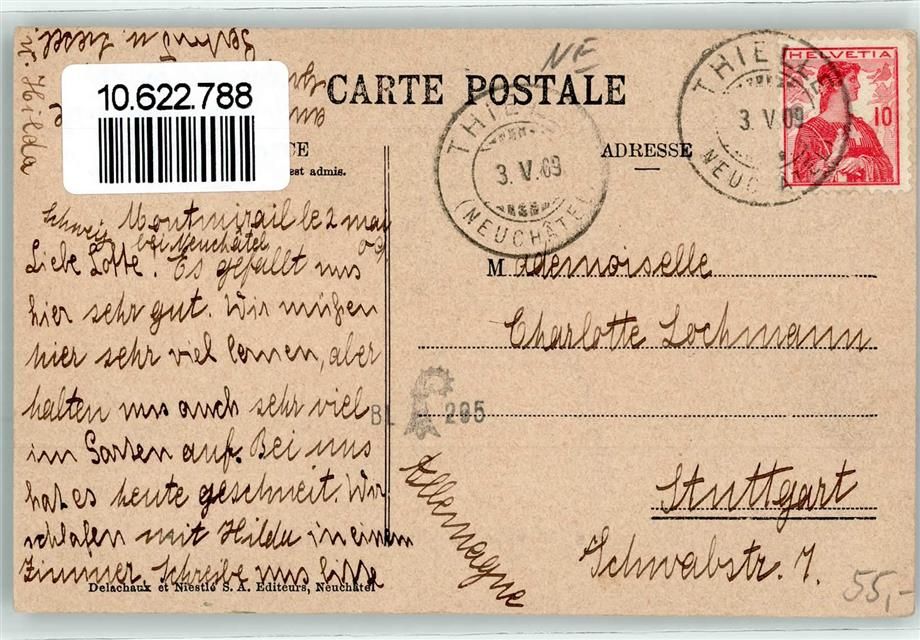 NE
CARTE POSTALE
10.622.788
est admis.
ADRESSE
THIELLE
3. V. 09
(NEUCHÂTEL)
THIELLE
3. V. 09
HELVETIA
10
Schweiz Montmirail le 2 may
bei Neuchâtel 09
Liebe Lotte. Es gefällt uns
hier sehr gut. Wir müßen
hier sehr viel lernen, aber
halten uns auch sehr viel
im Garten auf. Bei uns
hat es heute geschneit. Wir
schlafen mit Hilda in einem
Zimmer. Schreibe uns bitte
u. Liesel.
v. Hilda
Mademoiselle
Charlotte Lochmann
Stuttgart
Schwabstr. 7.
Allemagne
BL 295
55,-
Delachaux et Niestlé S. A. Editeurs, Neuchâtel